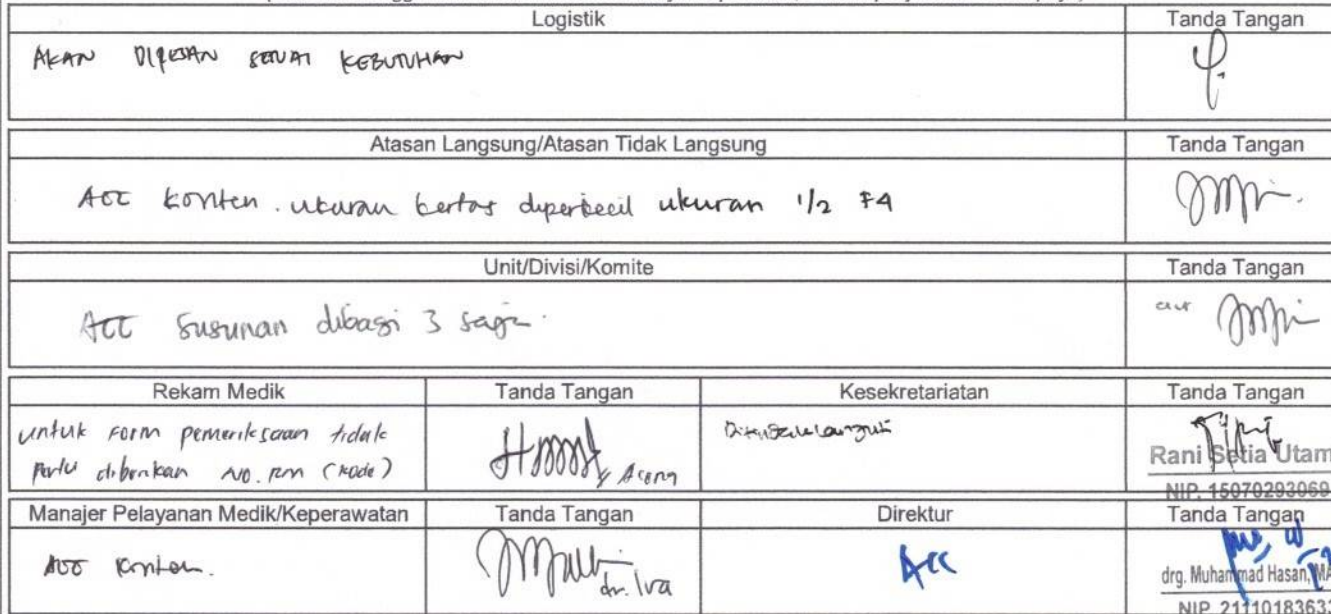 Logistik Tanda Tangan
AKAN DIPESAN SESUAI KEBUTUHAN
Atasan Langsung/Atasan Tidak Langsung Tanda Tangan
Acc konten. ukuran kertas diperkecil ukuran 1/2 F4
Unit/Divisi/Komite Tanda Tangan
Acc Susunan dibagi 3 saja.
Rekam Medik Tanda Tangan Kesekretariatan Tanda Tangan
untuk Form pemeriksaan tidak
perlu diberikan NO. RM (Kode)
Ditindaklanjuti
Rani Setia Utam
NIP. 15070293069
Manajer Pelayanan Medik/Keperawatan Tanda Tangan Direktur Tanda Tangan
Acc Konten.
dr. Iva
Acc
drg. Muhammad Hasan, MA
NIP. 2111018363